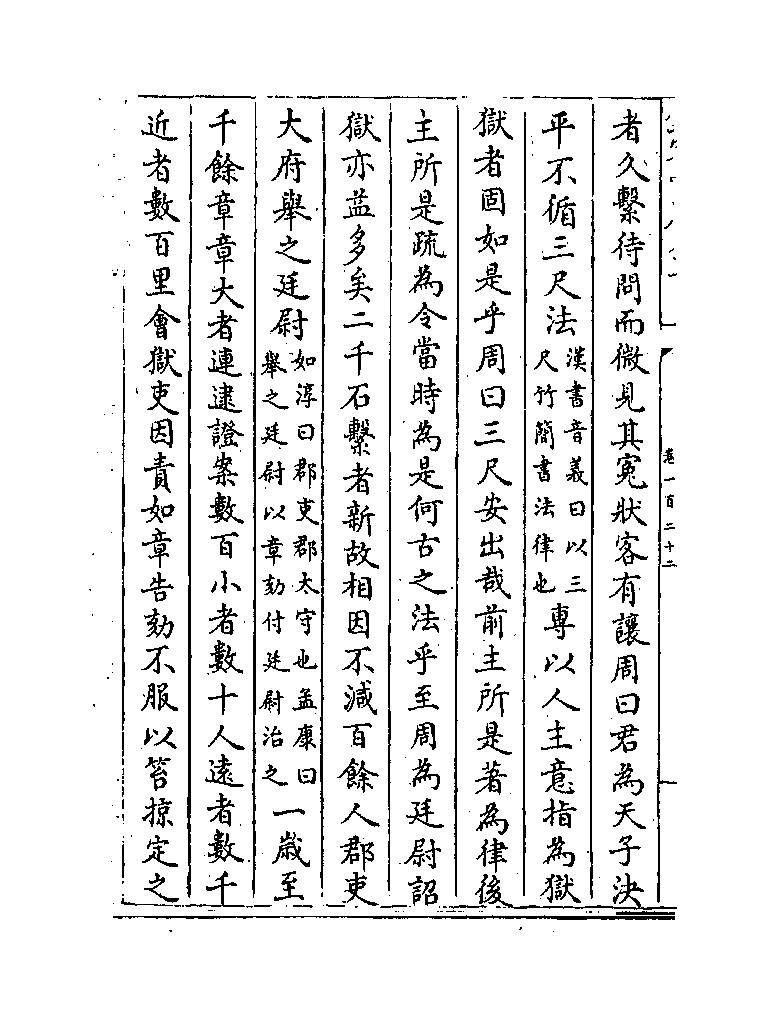 者久繫待問而微見其冤狀客有讓周曰君為天子決
平不循三尺法漢書音義曰以三尺竹簡書法律也專以人主意指為獄
獄者固如是乎周曰三尺安出哉前主所是著為律後
主所是疏為令當時為是何古之法乎至周為廷尉詔
獄亦益多矣二千石繫者新故相因不減百餘人郡吏
大府舉之廷尉如淳曰郡吏郡太守也孟康曰舉之廷尉以章劾付廷尉治之一歲至
千餘章章大者連逮證案數百小者數十人遠者數千
近者數百里會獄吏因責如章告劾不服以笞掠定之
卷一百二十二